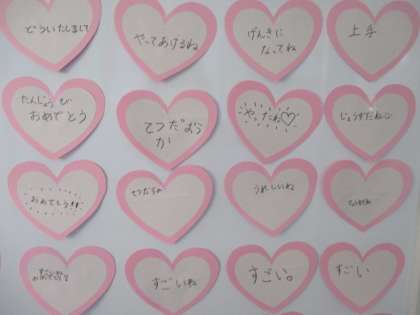 どういたしまして
やってあげるね
げんきに
なってね
上手
たんじょうび
おめでとう
てつだおう
か
やったね♡
じょうずだね
おめでとう!!
うれしいね
すごいね
すごい。
すごい